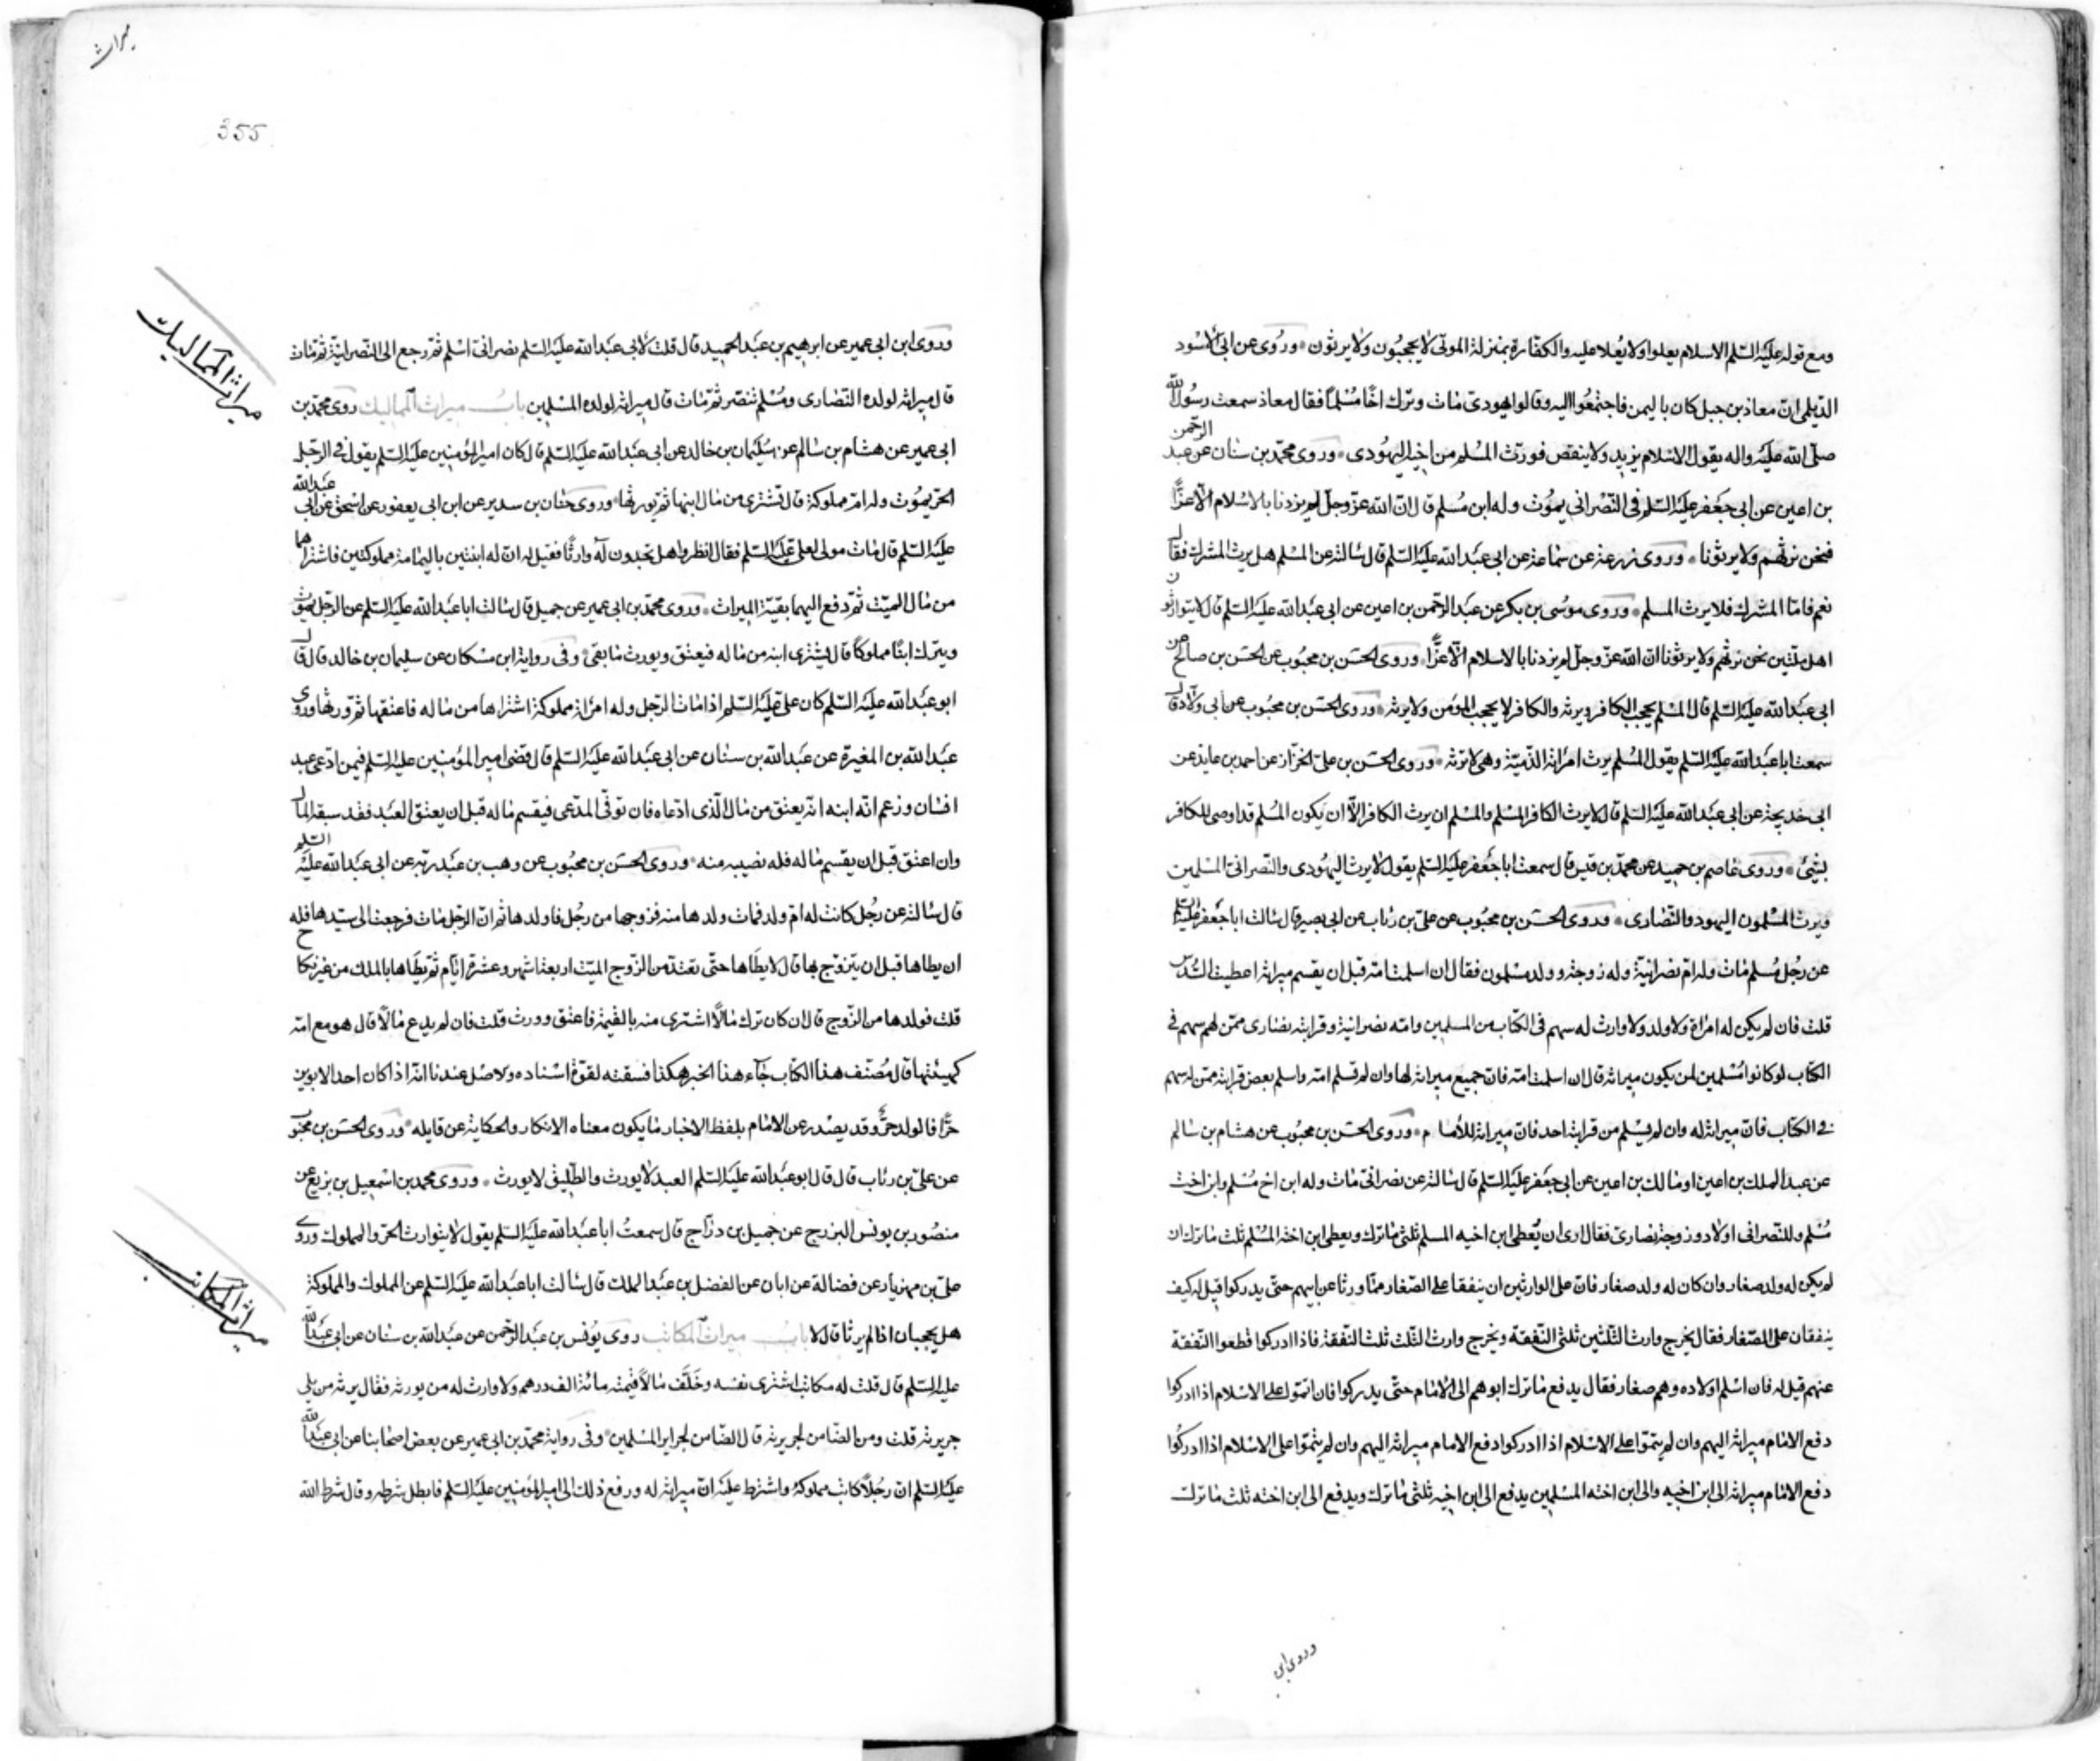 ومع قوله عليه السلم الاسلام يعلو ولا يعلا عليه والكفار بمنزلة الموتى لا يحجبون ولا يرثون وروى عن ابى الاسود
الديلمى ان معاذ بن جبل كان باليمن فاجتمعوا اليه وقالوا يهودى مات وترك اخا مسلما فقال معاذ سمعت رسول الله
صلى الله عليه واله يقول الاسلام يزيد ولا ينقص فورث المسلم من اخيه اليهودى وروى محمد بن سنان عن عبد الرحمن
بن اعين عن ابى جعفر عليه السلم فى النصرانى يموت وله ابن مسلم قال ان الله عز وجل لم يزدنا بالاسلام الا عزا
فنحن نرثهم ولا يرثونا وروى زرعة عن سماعة عن ابى عبد الله عليه السلم قال سالته عن المسلم هل يرث المشرك فقال
نعم فاما المشرك فلا يرث المسلم وروى موسى بن بكر عن عبد الرحمن بن اعين عن ابى عبد الله عليه السلم قال لا يتوارثون
اهل ملتين نحن نرثهم ولا يرثونا ان الله عز وجل لم يزدنا بالاسلام الا عزا وروى الحسن بن محبوب عن الحسن بن صالح عن
ابى عبد الله عليه السلم قال المسلم يحجب الكافر ويرثه والكافر لا يحجب المؤمن ولا يرثه وروى الحسن بن محبوب عن ابى ولاد قال
سمعت ابا عبد الله عليه السلم يقول المسلم يرث امراته الذمية وهى لا ترثه وروى الحسن بن على الخزاز عن احمد بن عايذ عن
ابى خديجة عن ابى عبد الله عليه السلم قال لا يرث الكافر المسلم والمسلم ان يرث الكافر الا ان يكون المسلم قد اوصى للكافر
بشيئ وروى عاصم بن حميد عن محمد بن قيس قال سمعت ابا جعفر عليه السلم يقول لا يرث اليهودى والنصرانى المسلمين
ويرث المسلمون اليهود والنصارى وروى الحسن بن محبوب عن على بن رئاب عن ابى بصير قال سالت ابا جعفر عليه السلم
عن رجل مسلم مات وله ام نصرانية وله زوجة وولد مسلمون فقال ان اسلمت امه قبل ان يقسم ميراثه اعطيت السدس
قلت فان لم يكن له امراة ولا ولد ولا وارث له سهم فى الكتاب من المسلمين وامه نصرانية وقرابته نصارى ممن لهم سهم فى
الكتاب لو كانوا مسلمين لمن يكون ميراثه قال ان اسلمت امه فان جميع ميراثه لها وان لم تسلم امه واسلم بعض قرابته ممن له سهم
فى الكتاب فان ميراثه له وان لم يسلم من قرابته احد فان ميراثه للامام وروى الحسن بن محبوب عن هشام بن سالم
عن عبد الملك بن اعين او مالك بن اعين عن ابى جعفر عليه السلم قال سالته عن نصرانى مات وله ابن اخ مسلم وابن اخت
مسلم وللنصرانى اولاد وزوجة نصارى فقال ارى ان يعطى ابن اخيه المسلم ثلثى ما ترك ويعطى ابن اخته المسلم ثلث ما ترك ان
لم يكن له ولد صغار وان كان له ولد صغار فان على الوارثين ان ينفقا على الصغار مما ورثا عن ابيهم حتى يدركوا قيل له كيف
ينفقان على الصغار فقال يخرج وارث الثلثين ثلثى النفقة ويخرج وارث الثلث ثلث النفقة فاذا ادركوا قطعوا النفقة
عنهم قيل له فان اسلم اولاده وهم صغار فقال يدفع ما ترك ابوهم الى الامام حتى يدركوا فان اتموا على الاسلام اذا ادركوا
دفع الامام ميراثه اليهم وان لم يتموا على الاسلام اذا ادركوا دفع الامام ميراثه اليهم وان لم يتموا على الاسلام اذا ادركوا
دفع الامام ميراثه الى ابن اخيه والى ابن اخته المسلمين يدفع الى ابن اخيه ثلثى ما ترك ويدفع الى ابن اخته ثلث ما ترك
وروى ابن
ميراث
355
وروى ابن ابى عمير عن ابرهيم بن عبد الحميد قال قلت لابى عبد الله عليه السلم نصرانى اسلم ثم رجع الى النصرانية ثم مات
قال ميراثه لولده النصارى ومسلم تنصر ثم مات قال ميراثه لولده المسلمين باب ميراث المماليك روى محمد بن
ميراث المماليك
ابى عمير عن هشام بن سالم عن سليمان بن خالد عن ابى عبد الله عليه السلم قال كان امير المؤمنين عليه السلم يقول فى الرجل
الحر يموت وله ام مملوكة قال تشترى من مال ابنها ثم يورثها وروى حنان بن سدير عن ابن ابى يعفور عن اسحق عن ابى عبد الله
عليه السلم قال مات مولى لعلى عليه السلم فقال انظروا هل تجدون له وارثا فقيل له ان له ابنتين باليمامة مملوكتين فاشتراهما
من مال الميت ثم دفع اليهما بقية الميراث وروى محمد بن ابى عمير عن جميل قال سالت ابا عبد الله عليه السلم عن الرجل يموت
ويترك ابنا مملوكا قال يشترى ابنه من ماله فيعتق ويورث ما بقى وفى رواية ابن مسكان عن سليمان بن خالد قال قال
ابو عبد الله عليه السلم كان على عليه السلم اذا مات الرجل وله امراة مملوكة اشتراها من ماله فاعتقها ثم ورثها وروى
عبد الله بن المغيرة عن عبد الله بن سنان عن ابى عبد الله عليه السلم قال قضى امير المؤمنين عليه السلم فيمن ادعى عبد
انسان وزعم انه ابنه انه يعتق من مال الذى ادعاه فان توفى المدعى فيقسم ماله قبل ان يعتق العبد فقد سبقه المال
وان اعتق قبل ان يقسم ماله فله نصيبه منه وروى الحسن بن محبوب عن وهب بن عبد ربه عن ابى عبد الله عليه السلم
قال سالته عن رجل كانت له ام ولد فمات ولدها منه فزوجها من رجل فاولدها ثم ان الرجل مات فرجعت الى سيدها فله
ان يطاها قبل ان يتزوج بها قال لا يطاها حتى تعتد من الزوج الميت اربعة اشهر وعشرة ايام ثم يطاها بالملك من غير نكاح
قلت فولدها من الزوج قال ان كان ترك مالا اشترى منه بالقيمة فاعتق وورث قلت فان لم يدع مالا قال هو مع امه
كهيئتها قال مصنف هذا الكتاب جآء هذا الخبر هكذا فسقته لقوة اسناده والاصل عندنا انه اذا كان احد الابوين
حرا فالولد حر وقد يصدر عن الامام بلفظ الاخبار ما يكون معناه الانكار والحكاية عن قايله وروى الحسن بن محبوب
عن على بن رئاب قال قال ابو عبد الله عليه السلم العبد لا يورث والطليق لا يورث وروى محمد بن اسمعيل بن بزيع عن
منصور بن يونس البزرج عن جميل بن دراج قال سمعت ابا عبد الله عليه السلم يقول لا يتوارث الحر والمملوك وروى
على بن مهزيار عن فضالة عن ابان عن الفضل بن عبد الملك قال سالت ابا عبد الله عليه السلم عن المملوك والمملوكة
هل يحجبان اذا لم يرثا قال لا باب ميراث المكاتب روى يونس بن عبد الرحمن عن عبد الله بن سنان عن ابى عبد الله
ميراث المكاتب
عليه السلم قال قلت له مكاتب اشترى نفسه وخلف مالا قيمته مائة الف درهم ولا وارث له من يورثه فقال يرثه من يلى
جريرته قلت ومن الضامن لجريرته قال الضامن لجراير المسلمين وفى رواية محمد بن ابى عمير عن بعض اصحابنا عن ابى عبد الله
عليه السلم ان رجلا كاتب مملوكه واشترط عليه ان ميراثه له ورفع ذلك الى امير المؤمنين عليه السلم فابطل شرطه وقال شرط الله